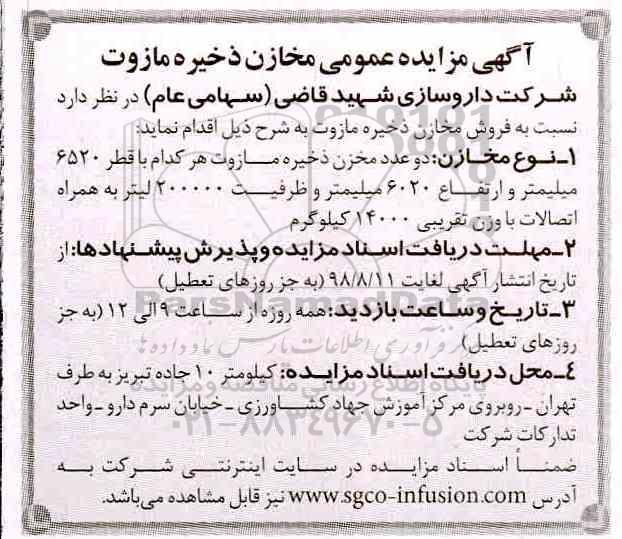 آگهی مزایده عمومی مخازن ذخیره مازوت
شرکت داروسازی شهید قاضی (سهامی عام) در نظر دارد
نسبت به فروش مخازن ذخیره مازوت به شرح ذیل اقدام نماید:
۱ـ نوع مخازن: دو عدد مخزن ذخیره مازوت هر کدام با قطر ۶۵۲۰
میلیمتر و ارتفاع ۶۰۲۰ میلیمتر و ظرفیت ۲۰۰۰۰۰ لیتر به همراه
اتصالات با وزن تقریبی ۱۴۰۰۰ کیلوگرم
۲ـ مهلت دریافت اسناد مزایده و پذیرش پیشنهادها: از
تاریخ انتشار آگهی لغایت ۹۸/۸/۱۱ (به جز روزهای تعطیل)
ParsNamadData
۳ـ تاریخ و ساعت بازدید: همه روزه از ساعت ۹ الی ۱۲ (به جز
روزهای تعطیل)
مرکز فرآوری اطلاعات پارس نماد داده ها
۴ـ محل دریافت اسناد مزایده: کیلومتر ۱۰ جاده تبریز به طرف
پایگاه اطلاع رسانی مناقصه و مزایده
تهران ـ روبروی مرکز آموزش جهاد کشاورزی ـ خیابان سرم دارو ـ واحد
۰۲۱-۸۸۳۴۹۶۷۰-۵
تدارکات شرکت
ضمناً اسناد مزایده در سایت اینترنتی شرکت به
آدرس www.sgco-infusion.com نیز قابل مشاهده می‌باشد.